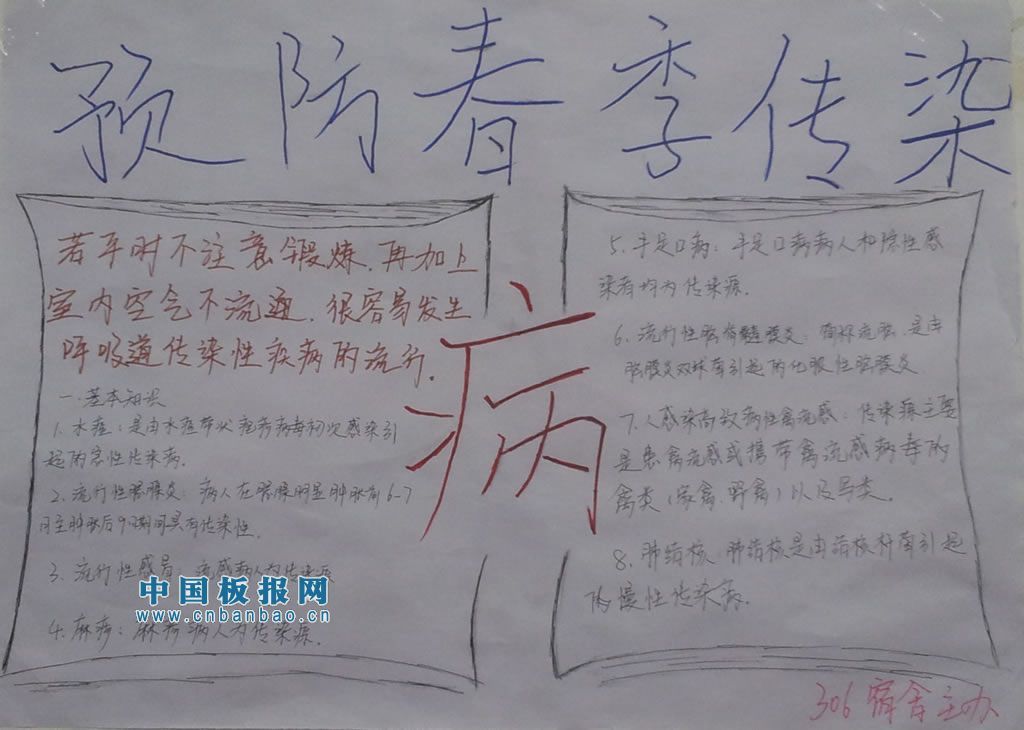 预防春季传染
病
若平时不注意锻炼,再加上
室内空气不流通,很容易发生
呼吸道传染性疾病的流行.
一.基本知识
1.水痘:是由水痘带状疱疹病毒初次感染引
起的急性传染病.
2.流行性腮腺炎:病人在腮腺明显肿胀前6-7
日至肿胀后9日期间具有传染性.
3.流行性感冒:流感病人为传染源
4.麻疹:麻疹病人为传染源.
5.手足口病:手足口病病人和隐性感
染者均为传染源.
6.流行性脑脊髓膜炎:简称流脑,是由
脑膜炎双球菌引起的化脓性脑膜炎
7.人感染高致病性禽流感:传染源主要
是患禽流感或携带禽流感病毒的
禽类(家禽、野禽)以及鸟类.
8.肺结核:肺结核是由结核杆菌引起
的慢性传染病.
中国板报网
www.cnbanbao.cn
306宿舍主办